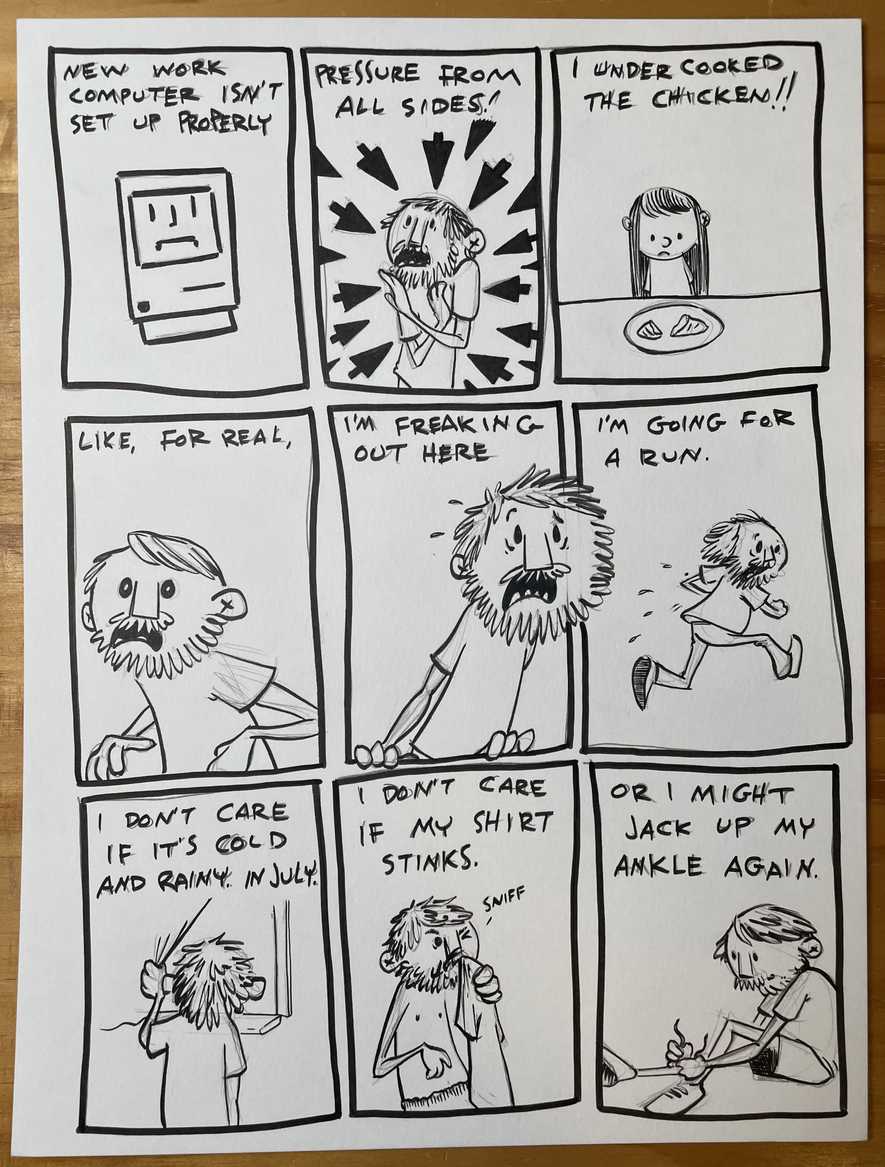 NEW WORK
COMPUTER ISN'T
SET UP PROPERLY
PRESSURE FROM
ALL SIDES!
I UNDERCOOKED
THE CHICKEN!!
LIKE, FOR REAL,
I'M FREAKING
OUT HERE
I'M GOING FOR
A RUN.
I DON'T CARE
IF IT'S COLD
AND RAINY. IN JULY.
I DON'T CARE
IF MY SHIRT
STINKS.
SNIFF
OR I MIGHT
JACK UP MY
ANKLE AGAIN.